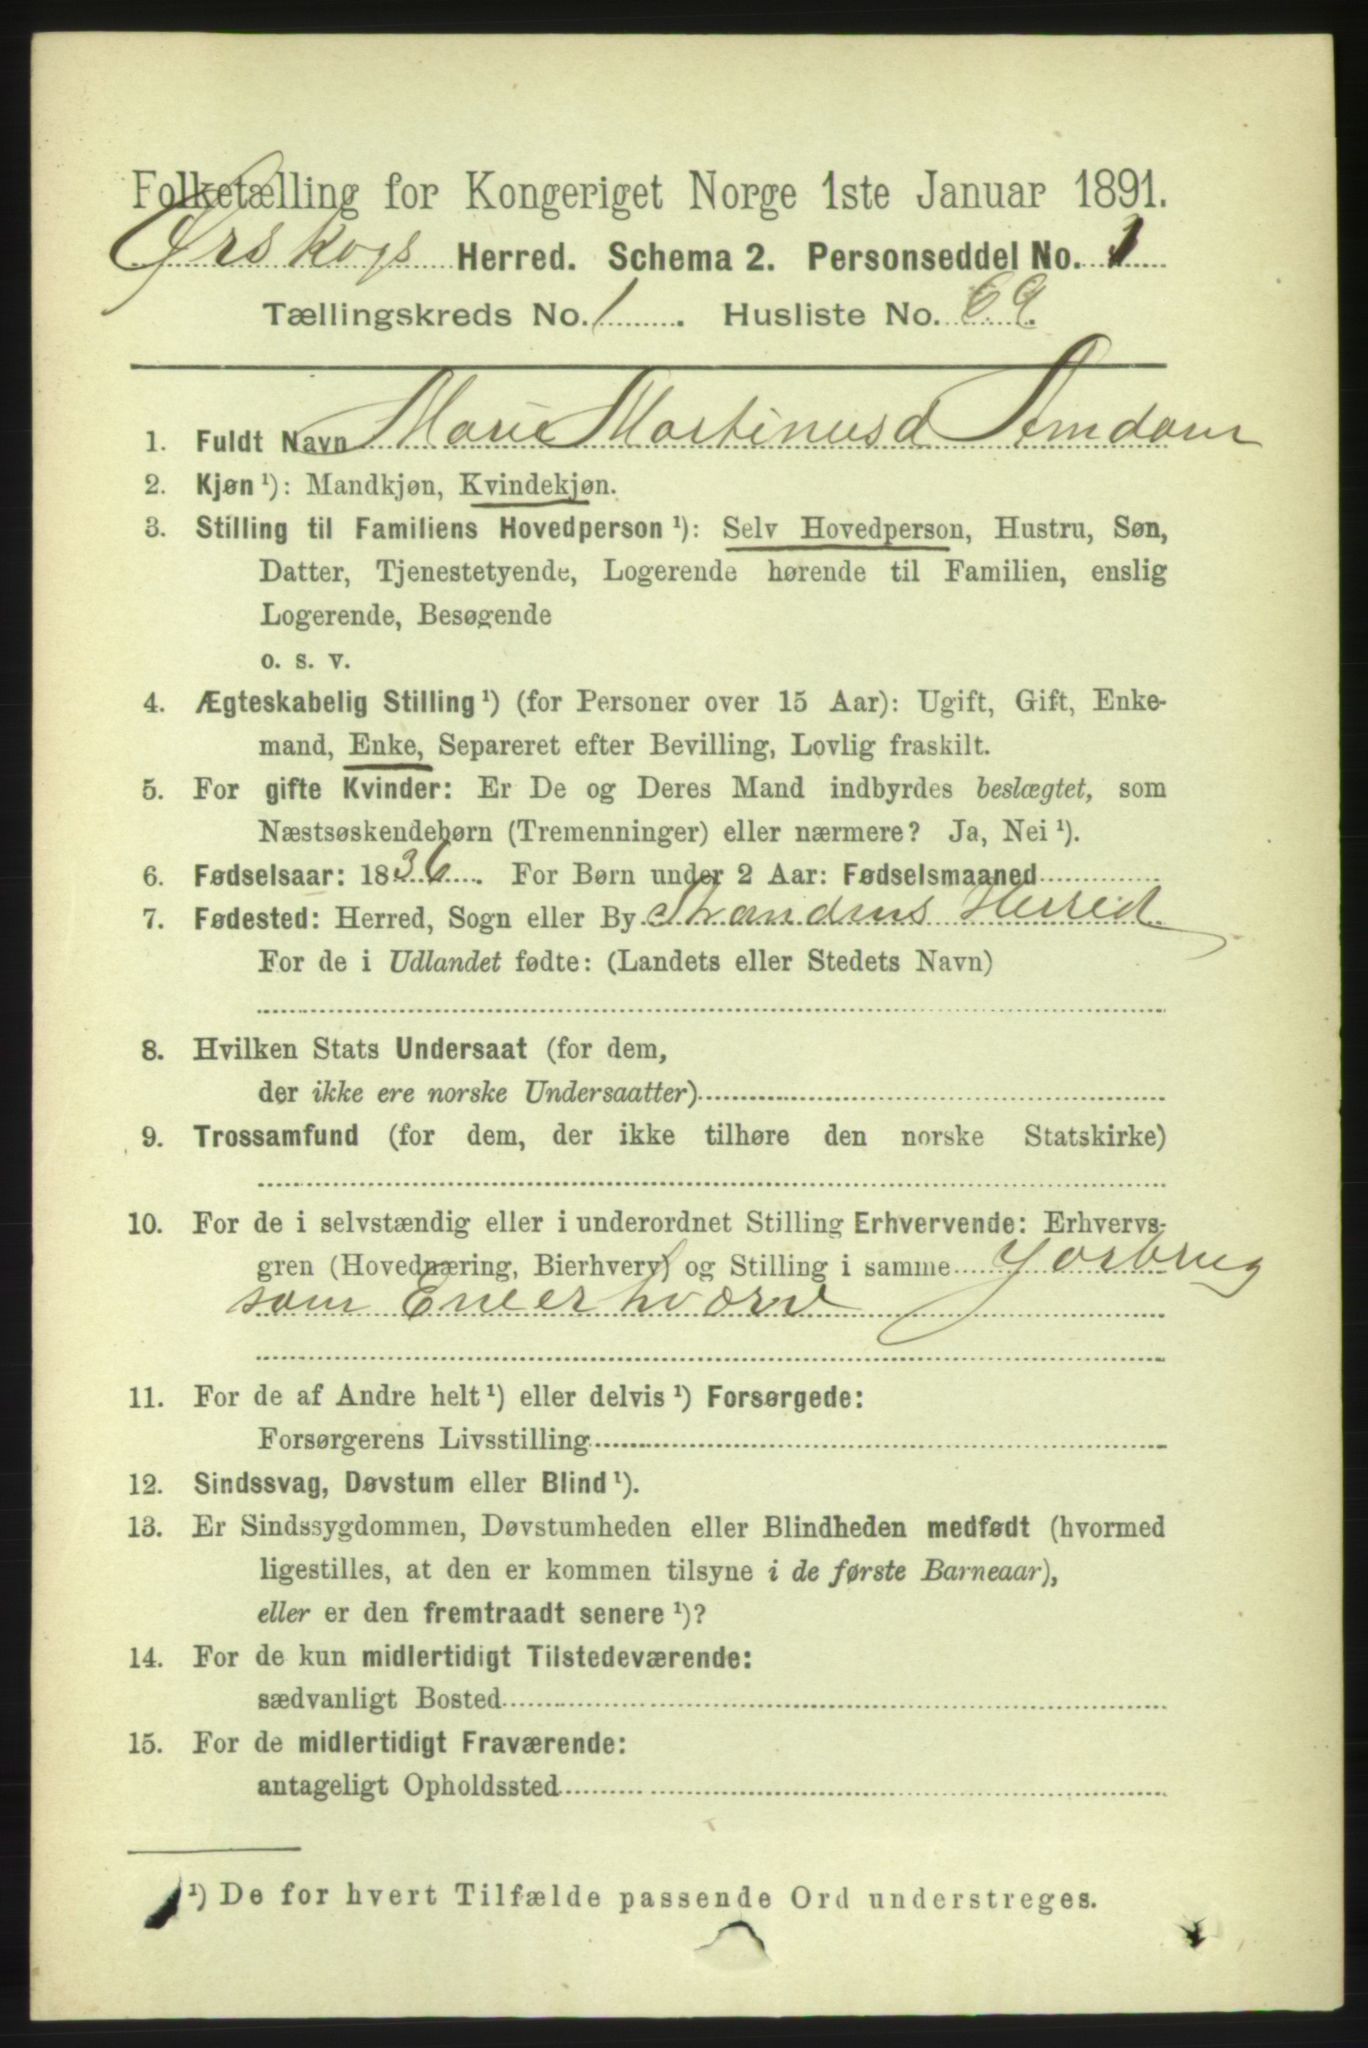 Folketælling for Kongeriget Norge 1ste Januar 1891.
Ørskogs Herred. Schema 2. Personseddel No. 1
Tællingskreds No. 1. Husliste No. 69.
1. Fuldt Navn Marie Martinusd Amdam
2. Kjøn ¹): Mandkjøn, Kvindekjøn.
3. Stilling til Familiens Hovedperson ¹): Selv Hovedperson, Hustru, Søn,
Datter, Tjenestetyende, Logerende hørende til Familien, enslig
Logerende, Besøgende
o. s. v.
4. Ægteskabelig Stilling ¹) (for Personer over 15 Aar): Ugift, Gift, Enke-
mand, Enke, Separeret efter Bevilling, Lovlig fraskilt.
5. For gifte Kvinder: Er De og Deres Mand indbyrdes beslægtet, som
Næstsøskendebørn (Tremenninger) eller nærmere? Ja, Nei ¹).
6. Fødselsaar: 1836. For Børn under 2 Aar: Fødselsmaaned
7. Fødested: Herred, Sogn eller By Strandens Herred
For de i Udlandet fødte: (Landets eller Stedets Navn)
8. Hvilken Stats Undersaat (for dem,
der ikke ere norske Undersaatter)
9. Trossamfund (for dem, der ikke tilhøre den norske Statskirke)
10. For de i selvstændig eller i underordnet Stilling Erhvervende: Erhvervs-
gren (Hovednæring, Bierhverv) og Stilling i samme Jorbrug
som Eneerhværv
11. For de af Andre helt ¹) eller delvis ¹) Forsørgede:
Forsørgerens Livsstilling
12. Sindssvag, Døvstum eller Blind ¹).
13. Er Sindssygdommen, Døvstumheden eller Blindheden medfødt (hvormed
ligestilles, at den er kommen tilsyne i de første Barneaar),
eller er den fremtraadt senere ¹)?
14. For de kun midlertidigt Tilstedeværende:
sædvanligt Bosted
15. For de midlertidigt Fraværende:
antageligt Opholdssted
¹) De for hvert Tilfælde passende Ord understreges.